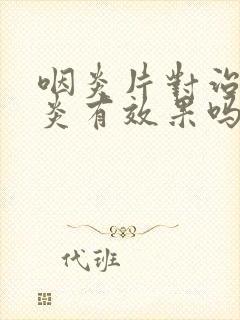 咽炎片對治
炎有效果吗
代班